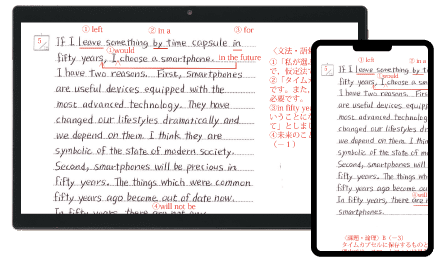 ① left ② in a ③ for
5 If I leave something by time capsule in
①would
fifty years, I choose a smartphone. in the future
I have two reasons. First, smartphones
are useful devices equipped with the
most advanced technology. They have
changed our lifestyles dramatically and
we depend on them. I think they are
symbolic of the state of modern society.
Second, smartphones will be precious in
fifty years. The things which were common
fifty years ago become out of date now.
④will not be
In fifty years, there are not any
〈文法・語
①「私が選
で、仮定法
②「タイム
です。また、
必要です。
③in fifty year
いうことにな
て」としまし
④未来のこ
(－1)
① left ② in a
5 If I leave something by t
①would
fifty years, I choose a smart
I have two reasons. First,
are useful devices equipp
most advanced technology.
changed our lifestyles dr
we depend on them. I thin
symbolic of the state of m
Second, smartphones will b
fifty years. The things w
fifty years ago become ou
④will
In fifty years, there are n
smartphones.
〈課題・論理〉B (－3)
タイムカプセルに保存するものと